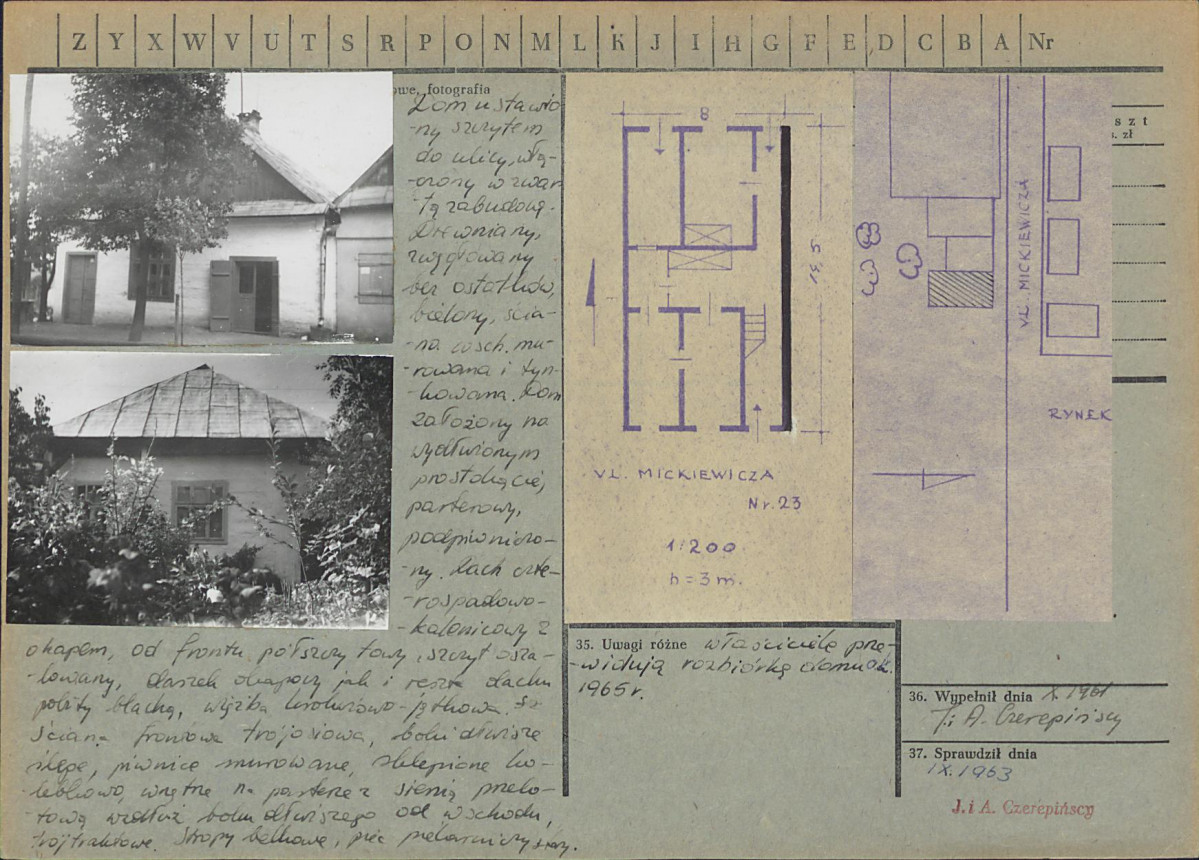 Z Y X W V U T S R P O N M L K J I H G F E D C B A Nr
owe, fotografia
Dom ustawio-
-ny szczytem
do ulicy, włą-
-czony w zwar-
-tą zabudowę.
Drewniany,
węgłowany
bez ostatków,
bielony, ścia-
-na wsch. mu-
-rowana i tyn-
-kowana. Dom
założony na
wydłużonym
prostokącie,
parterowy,
podpiwniczo-
-ny. Dach czte-
-rospadowo-
-kalenicowy z
okapem, od frontu półszczytowy, szczyt osza-
-lowany, daszek okapowy jak i reszta dachu
pobity blachą, więźba krokwiowo-jętkowa.
Ściana frontowa trójosiowa, boki dłuższe
ślepe, piwnice murowane, sklepione ko-
-lebkowo, wnętrze na parterze z sienią przelo-
-tową wzdłuż boku dłuższego od wschodu,
trójtraktowe. Stropy belkowe, piec piekarniczy stary.
8
15,5
UL. MICKIEWICZA
Nr. 23
1:200
h = 3 m.
UL. MICKIEWICZA
RYNEK
szt
s. zł
35. Uwagi różne właściciele prze-
-widują rozbiórkę domu
1965 r.
36. Wypełnił dnia X. 1961
J. i A. Czerepińscy
37. Sprawdził dnia
IX. 1963
J. i A. Czerepińscy